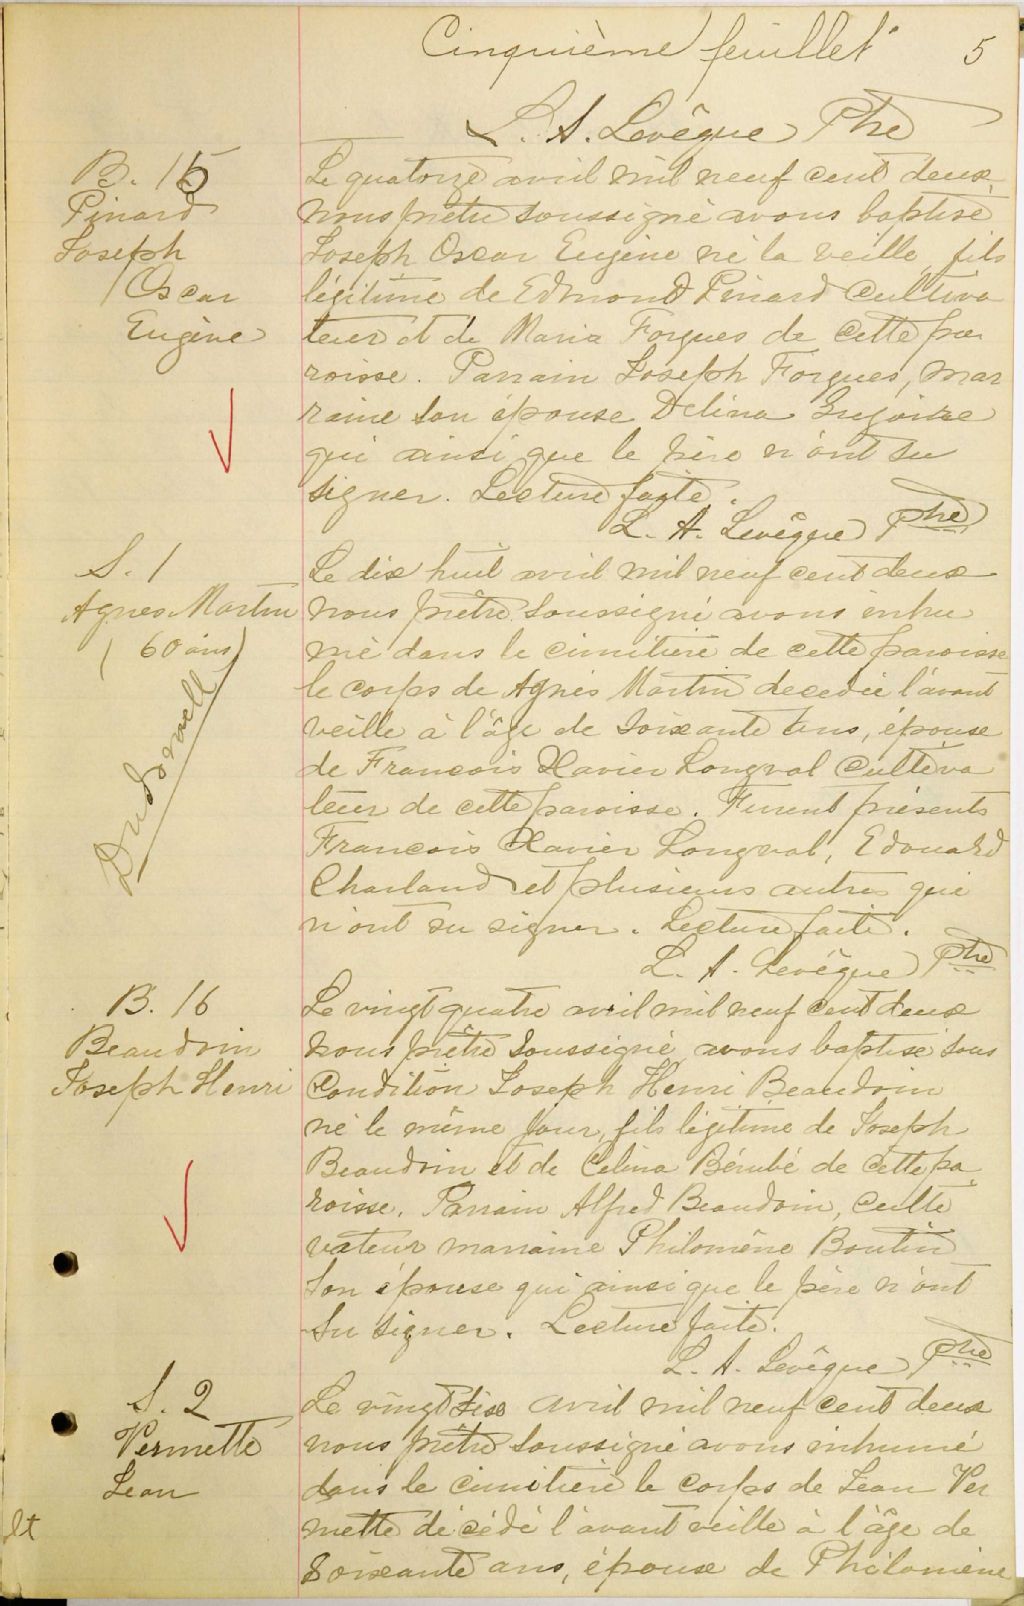 Cinquième feuillet 5
L. A. Levêque Ptre
B. 15
Pinard
Joseph
Oscar
Eugène
Le quatorze avril mil neuf cent deux
nous prêtre soussigné avons baptisé
Joseph Oscar Eugène né la veille, fils
légitime de Edmond Pinard cultiva
teur et de Maria Forgues de cette pa
roisse. Parrain Joseph Forgues, mar
raine son épouse Delina Gregoire
qui ainsi que le père n'ont su
signer. Lecture faite.
L. A. Levêque Ptre
S. 1
Agnes Martin
(60 ans)
Le dix huit avril mil neuf cent deux
nous prêtre soussigné avons inhu
mé dans le cimitière de cette paroisse
le corps de Agnès Martin decedée l'avant
veille à l'âge de soixante ans, épouse
de Francois Xavier Longval cultiva
teur de cette paroisse. Furent présents
Francois Xavier Longval, Edouard
Charland et plusieurs autres qui
n'ont su signer. Lecture faite.
L. A. Levêque Ptre
B. 16
Beaudoin
Joseph Henri
Le vingt quatre avril mil neuf cent deux
nous prêtre soussigné avons baptisé sous
condition Joseph Henri Beaudoin
né le même jour, fils légitime de Joseph
Beaudoin et de Celina Bérubé de cette pa
roisse. Parrain Alfred Beaudoin, culti
vateur marraine Philomène Boutin
son épouse qui ainsi que le père n'ont
su signer. Lecture faite.
L. A. Levêque Ptre
S. 2
Vermette
Jean
Le vingt six avril mil neuf cent deux
nous prêtre soussigné avons inhumé
dans le cimitière le corps de Jean Ver
mette décédé l'avant veille à l'âge de
soixante ans, époux de Philomène
lt